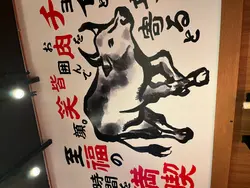 チョ
寄ると
お肉を
囲んで
皆
笑顔。
至福の
時間を
満喫